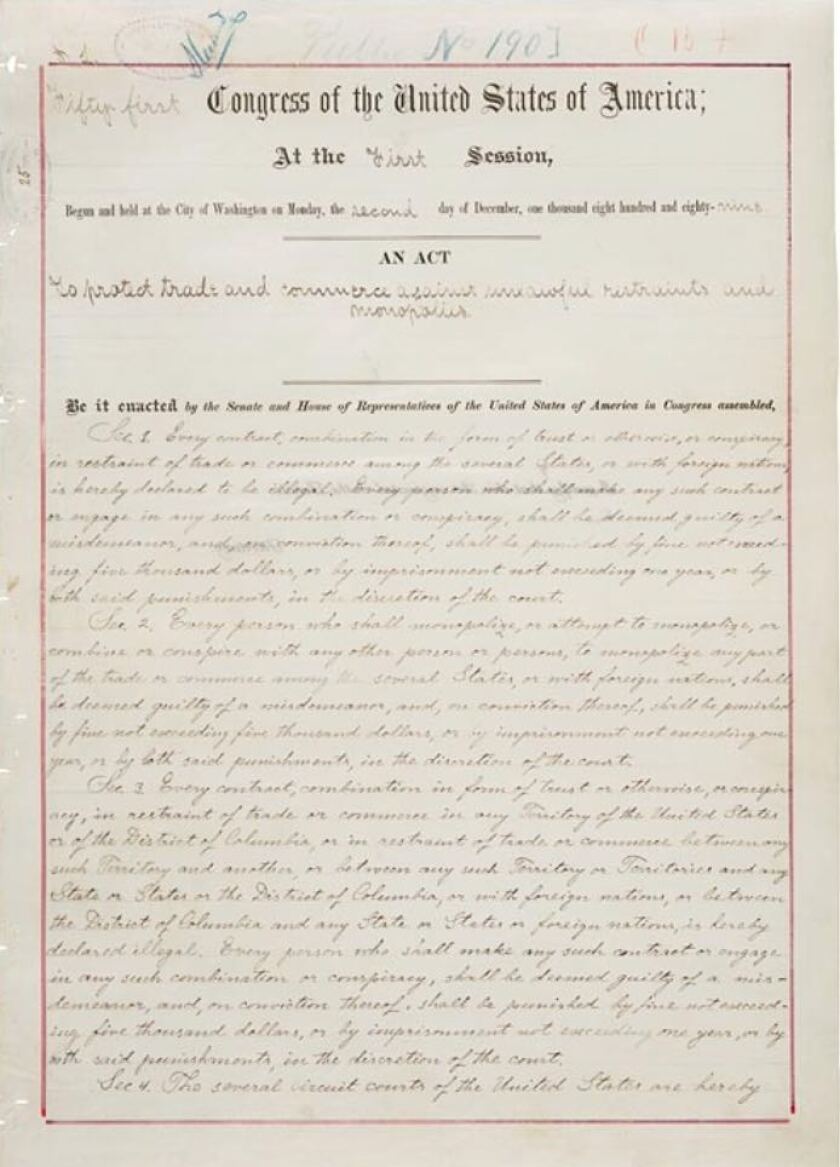 Public No 190]
Fifty first Congress of the United States of America;
At the First Session,
Begun and held at the City of Washington on Monday, the second day of December, one thousand eight hundred and eighty-nine.
AN ACT
To protect trade and commerce against unlawful restraints and
monopolies.
Be it enacted by the Senate and House of Representatives of the United States of America in Congress assembled,
Sec. 1. Every contract, combination in the form of trust or otherwise, or conspiracy,
in restraint of trade or commerce among the several States, or with foreign nations,
is hereby declared to be illegal. Every person who shall make any such contract
or engage in any such combination or conspiracy, shall be deemed guilty of a
misdemeanor, and, on conviction thereof, shall be punished by fine not exceed-
ing five thousand dollars, or by imprisonment not exceeding one year, or by
both said punishments, in the discretion of the court.
Sec. 2. Every person who shall monopolize, or attempt to monopolize, or
combine or conspire with any other person or persons, to monopolize any part
of the trade or commerce among the several States, or with foreign nations, shall
be deemed guilty of a misdemeanor, and, on conviction thereof, shall be punished
by fine not exceeding five thousand dollars, or by imprisonment not exceeding one
year, or by both said punishments, in the discretion of the court.
Sec. 3. Every contract, combination in form of trust or otherwise, or conspir-
acy, in restraint of trade or commerce in any Territory of the United States
or of the District of Columbia, or in restraint of trade or commerce between any
such Territory and another, or between any such Territory or Territories and any
State or States or the District of Columbia, or with foreign nations, or between
the District of Columbia and any State or States or foreign nations, is hereby
declared illegal. Every person who shall make any such contract or engage
in any such combination or conspiracy, shall be deemed guilty of a mis-
demeanor, and, on conviction thereof, shall be punished by fine not exceed-
ing five thousand dollars, or by imprisonment not exceeding one year, or by
both said punishments, in the discretion of the court.
Sec. 4. The several circuit courts of the United States are hereby